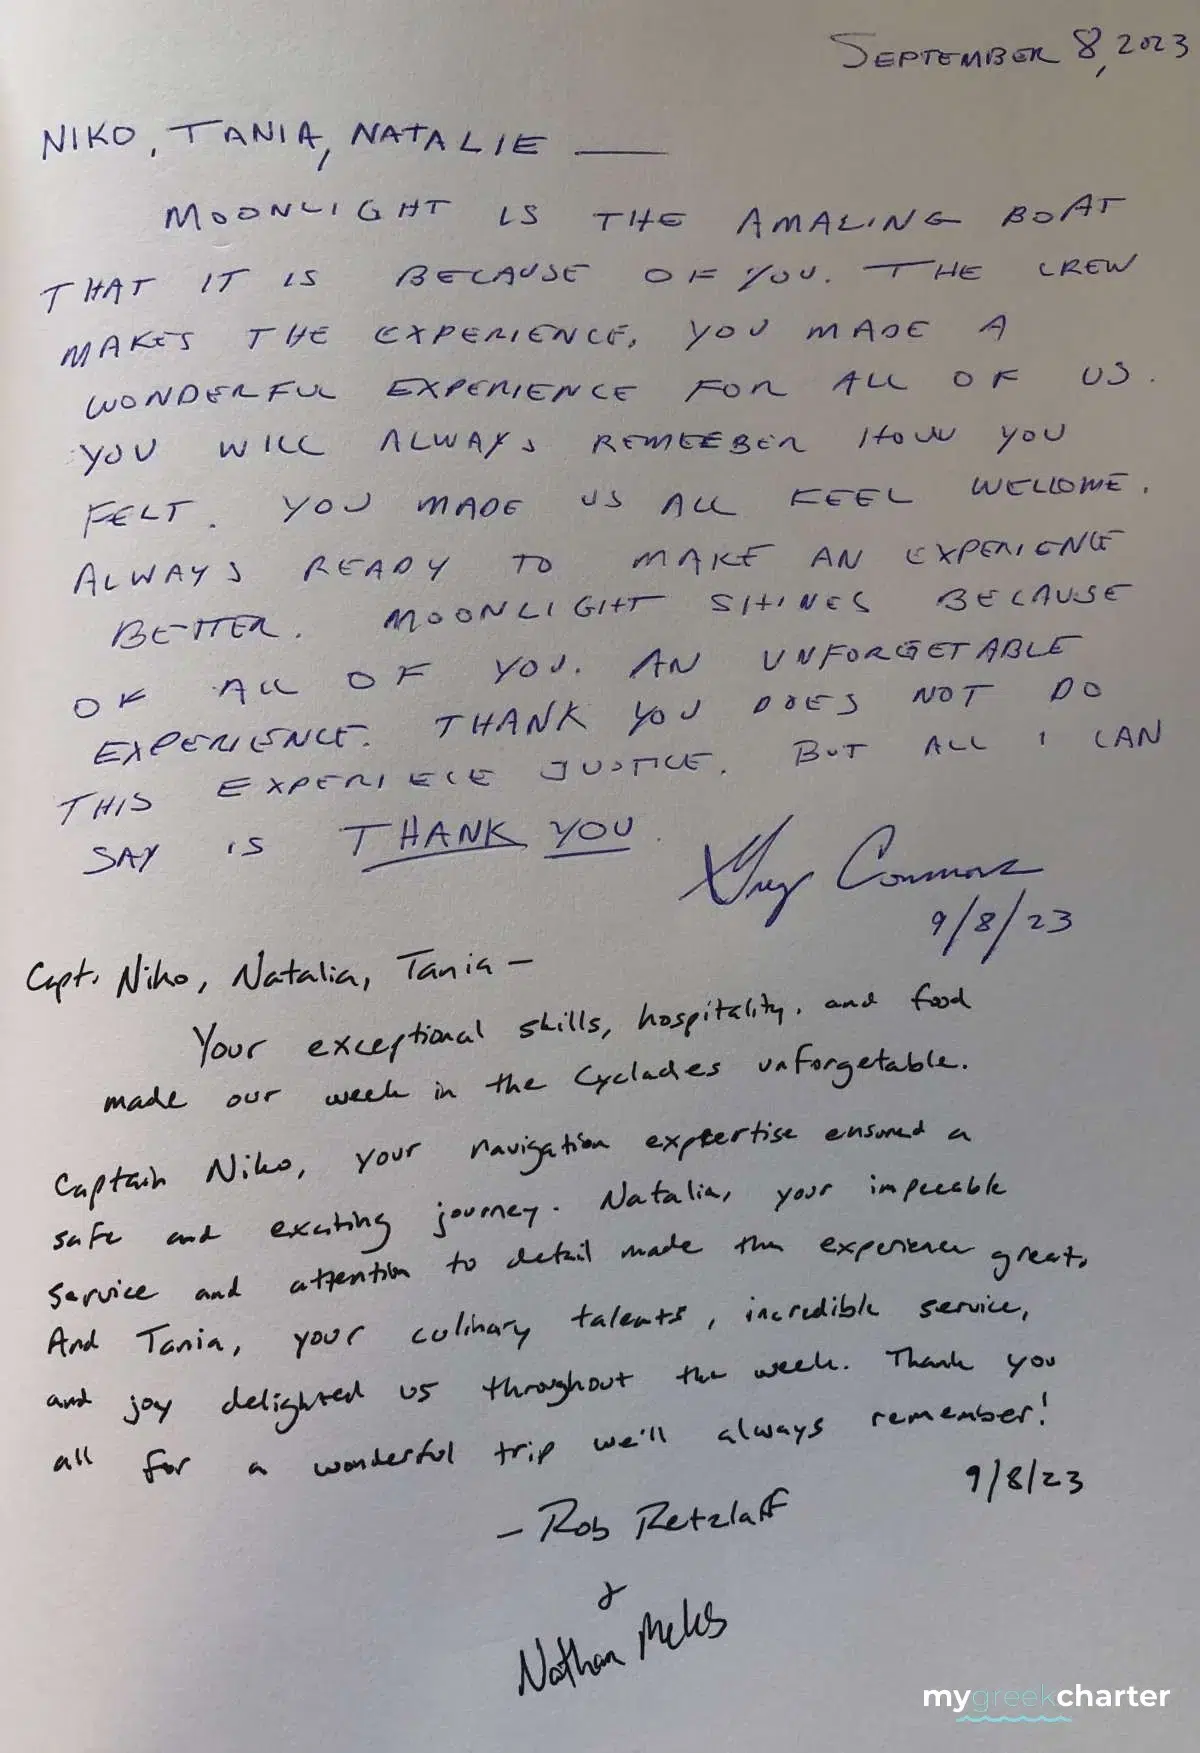 SEPTEMBER 8, 2023
NIKO, TANIA, NATALIE —
MOONLIGHT IS THE AMAZING BOAT
THAT IT IS BECAUSE OF YOU. THE CREW
MAKES THE EXPERIENCE. YOU MADE A
WONDERFUL EXPERIENCE FOR ALL OF US.
YOU WILL ALWAYS REMEEBER HOW YOU
FELT. YOU MADE US ALL FEEL WELCOME.
ALWAYS READY TO MAKE AN EXPERIENCE
BETTER. MOONLIGHT SHINES BECAUSE
OF ALL OF YOU. AN UNFORGETABLE
EXPERIENCE. THANK YOU DOES NOT DO
THIS EXPERIECE JUSTICE. BUT ALL I CAN
SAY IS THANK YOU.
Greg
9/8/23
Capt. Niko, Natalia, Tania —
Your exceptional skills, hospitality, and food
made our week in the Cyclades unforgetable.
Captain Niko, your navigation expertise ensured a
safe and exciting journey. Natalia, your impecable
service and attention to detail made the experience great.
And Tania, your culinary talents, incredible service,
and joy delighted us throughout the week. Thank you
all for a wonderful trip we'll always remember!
9/8/23
— Rob Retzlaff
&
Nathan
mygreekcharter